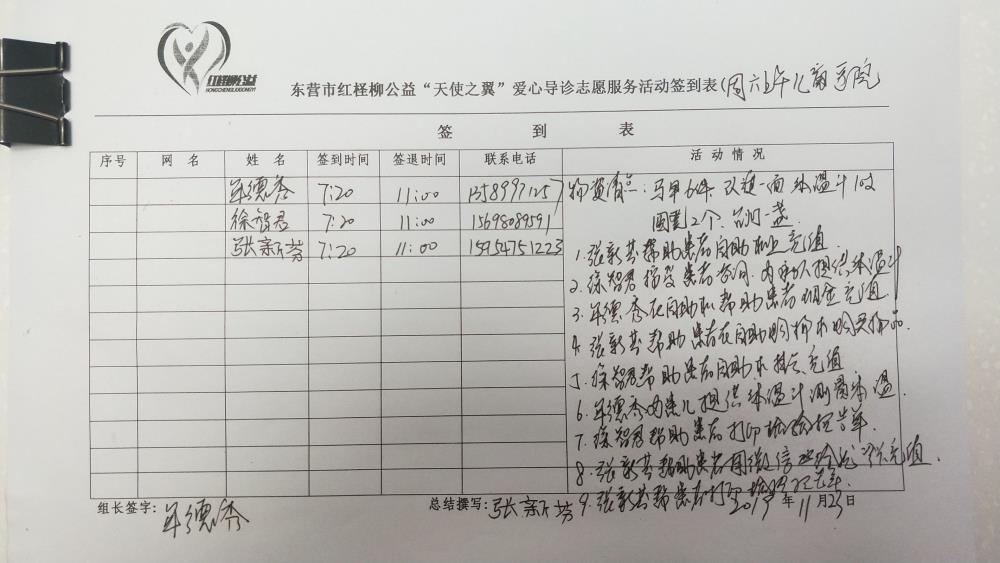 红柽柳公益
HONGCHENGLIUGONGYI
东营市红柽柳公益“天使之翼”爱心导诊志愿服务活动签到表(周六上午儿童医院
签 到 表
序号 网 名 姓 名 签到时间 签退时间 联系电话 活 动 情 况
牟德秀 7:20 11:00 13589971257
徐智君 7:20 11:00 15698089591
张新芬 7:20 11:00 15954751223
物资清点:马甲6件 一面 体温计10支
2个 一盏
1. 张新芬帮助患者自助机上充值
2. 徐智君接受患者咨询 提供体温计
3. 牟德秀在自助机帮助患者现金充值
4. 张新芬帮助患者在自助
5. 徐智君帮助患者自助 充值
6. 牟德秀为患儿提供体温计测量体温
7. 徐智君帮助患者打印检验报告单.
8. 张新芬帮助患者用微信 充值.
9. 张新芬帮患者打印检验报告单
组长签字: 牟德秀 总结撰写: 张新芬 2019年11月23日